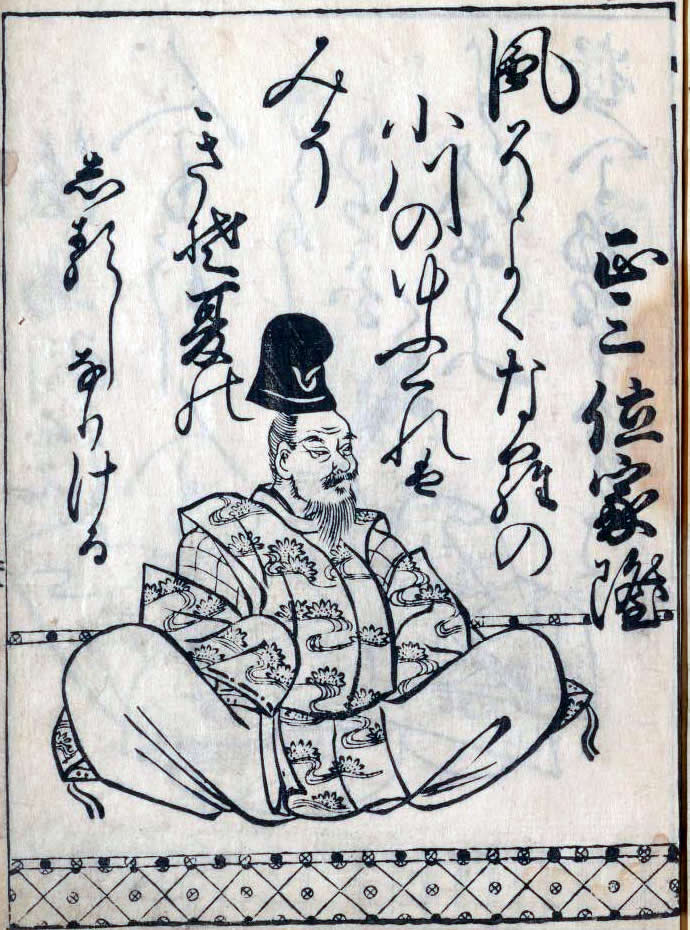 正三位家隆
風そよくならの
小川のゆふくれは
みそ
きそ夏の
しるしなりける